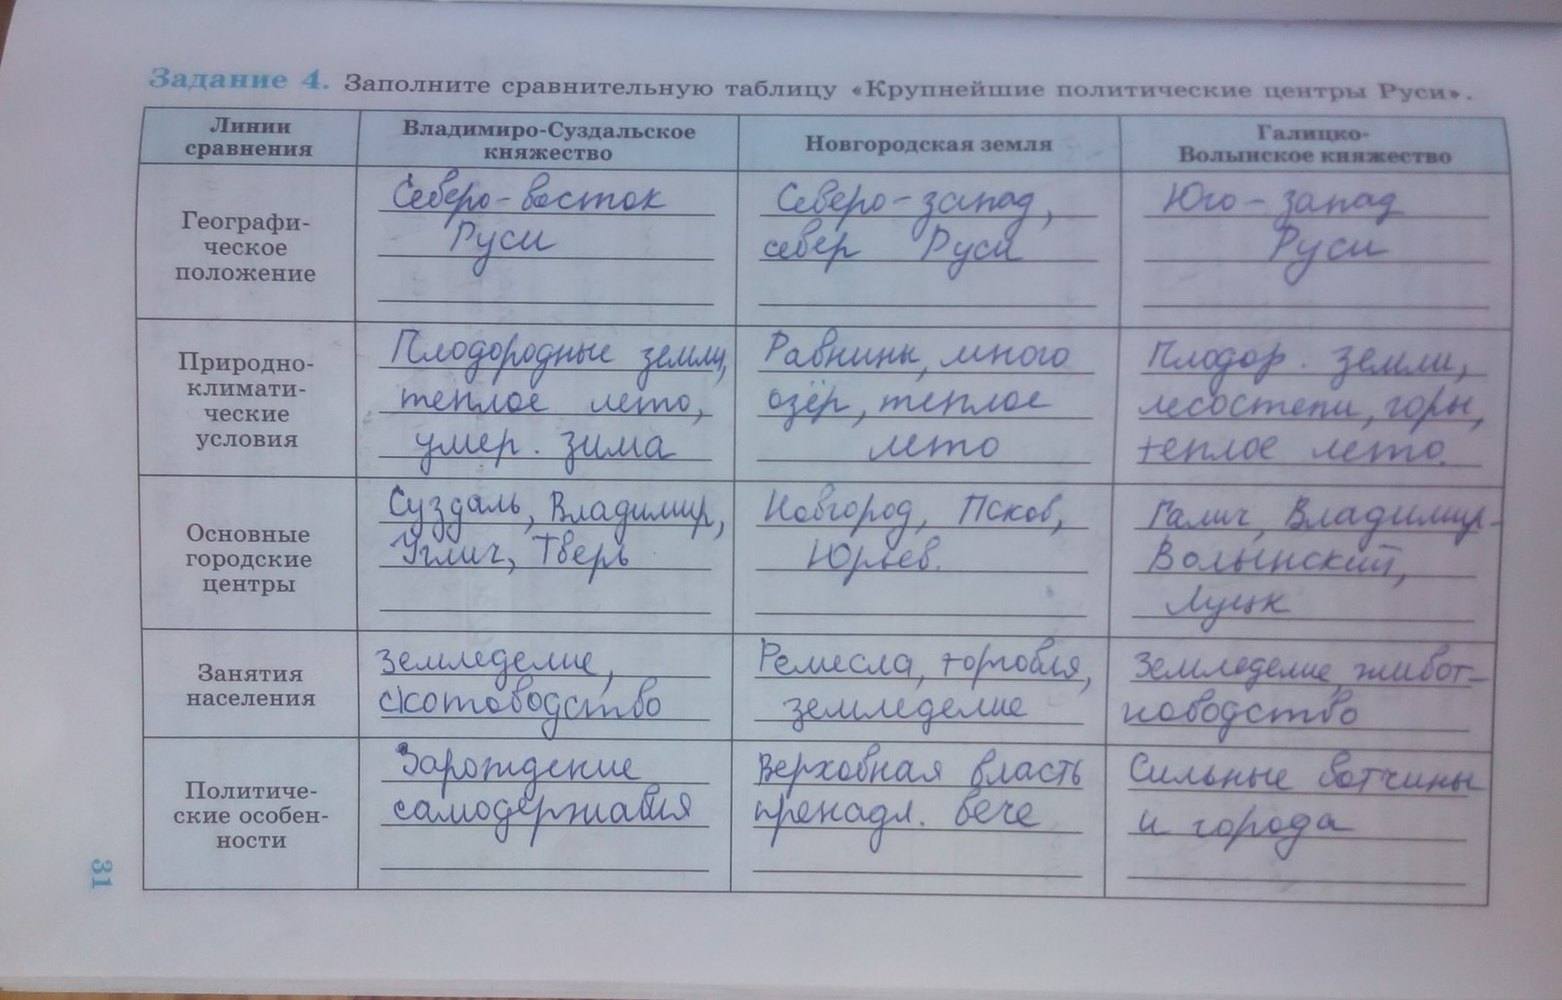 Задание 4. Заполните сравнительную таблицу «Крупнейшие политические центры Руси».
Линии
сравнения
Владимиро-Суздальское
княжество
Новгородская земля
Галицко-
Волынское княжество
Географи-
ческое
положение
Северо-восток
Руси
Северо-запад,
север Руси
Юго-запад
Руси
Природно-
климати-
ческие
условия
Плодородные земли,
теплое лето,
умер. зима
Равнины, много
озёр, теплое
лето
Плодор. земли,
лесостепи, горы,
теплое лето.
Основные
городские
центры
Суздаль, Владимир,
Углич, Тверь
Новгород, Псков,
Юрьев.
Галич, Владимир-
Волынский,
Луцк
Занятия
населения
Земледелие,
скотоводство
Ремесла, торговля,
земледелие
Земледелие, живот-
новодство
Политиче-
ские особен-
ности
Зарождение
самодержавия
Верховная власть
пренадл. вече
Сильные вотчины
и города
31